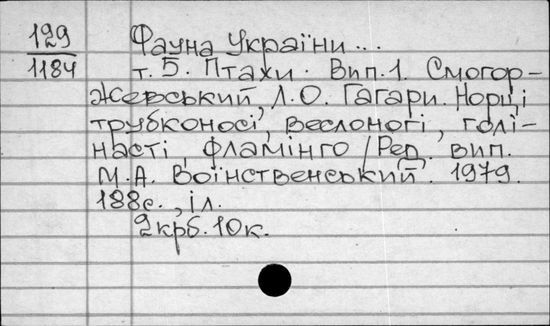 129
1184
Фауна України...
т. 5. Птахи. Вип.1. Смогор-
жевський, Л.О. Гагари. Норці
трубконосі, веслоногі, голі-
насті, фламінго / Ред. вип.
М.А. Воїнственський. 1979.
188с., іл.
2крб. 10к.